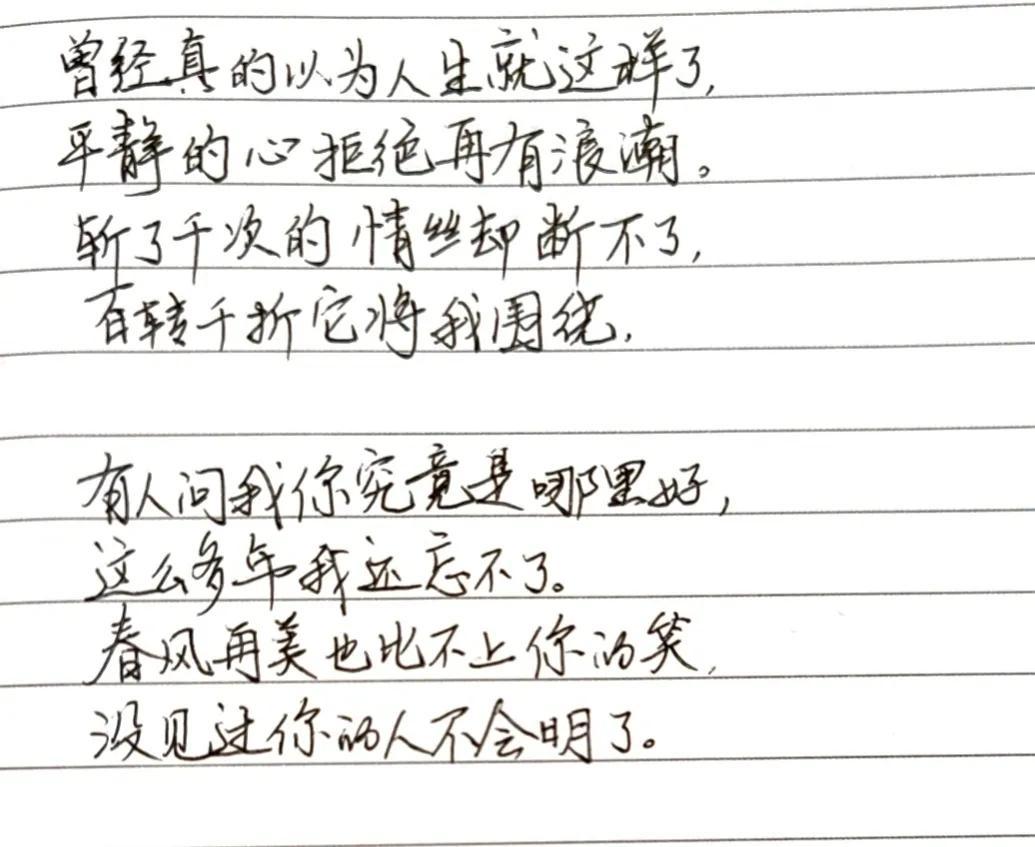 曾经真的以为人生就这样了,
平静的心拒绝再有浪潮。
斩了千次的情丝却断不了,
百转千折它将我围绕,
有人问我你究竟是哪里好,
这么多年我还忘不了。
春风再美也比不上你的笑,
没见过你的人不会明了。